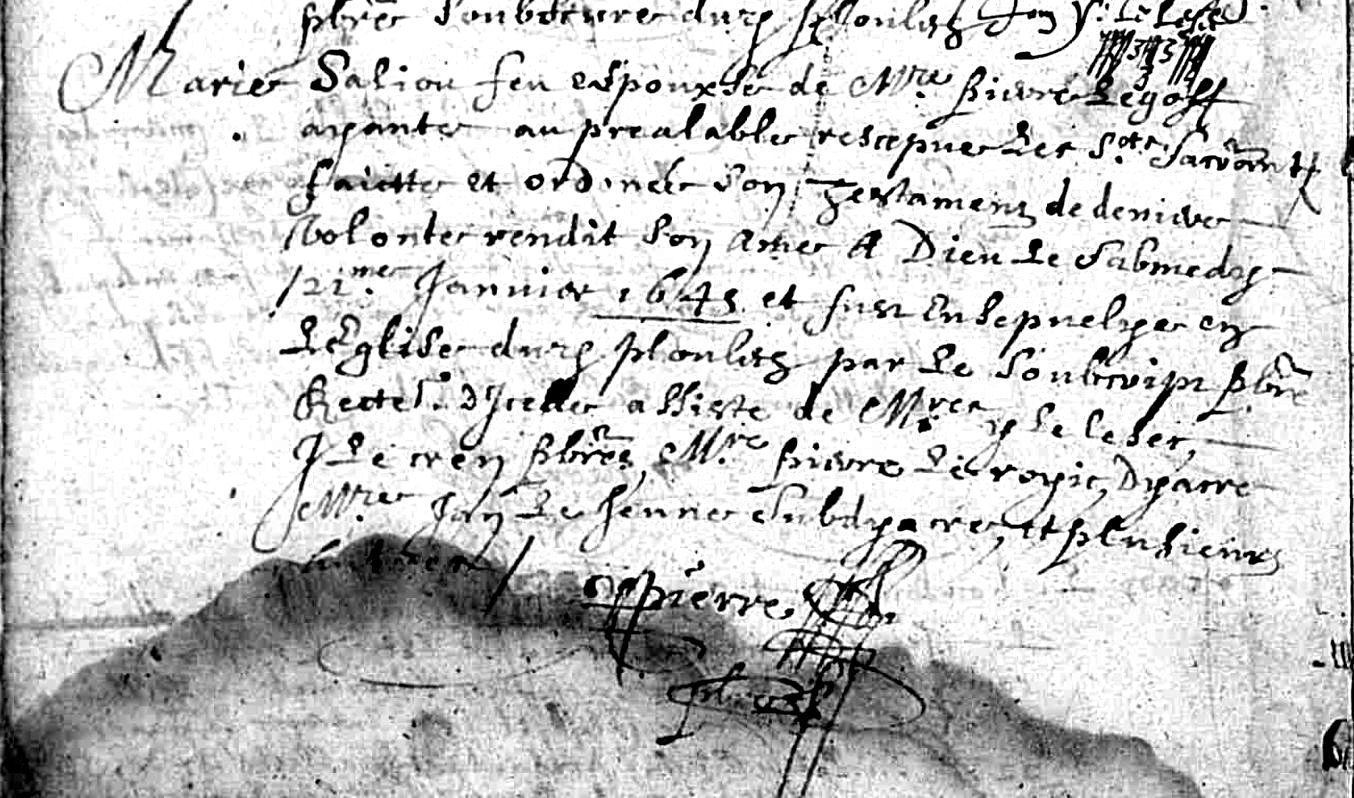 pbre soubcure durg ploulisz
Marie Saliou feu espouxse de Mre pierre Legoff
ayante au prealable rescepue Les Sots Sacrōmts
faicte et ordonée son Testamens de deniere
Volonte rendit son ame A Dieu Le Sabmedy
21me Janvier 1645 et fust Ensepuelye en
LEglise durg ploulisz par Le soubscript pbre
Rectr dIcelle assiste de Mres y Le
J Le crey pbres, Mre pierre Le royic, Dyacre
Mre Jan Le henne Subdyacre, et plusieurs
aultres /
Pierre